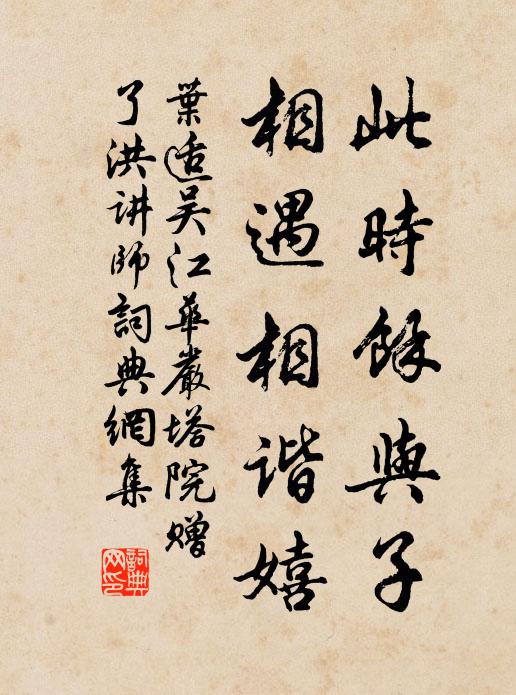 此時餘與子
相遇相谐嬉
葉适吴江華嚴塔院贈
了洪讲師詞典網集
詞典網印